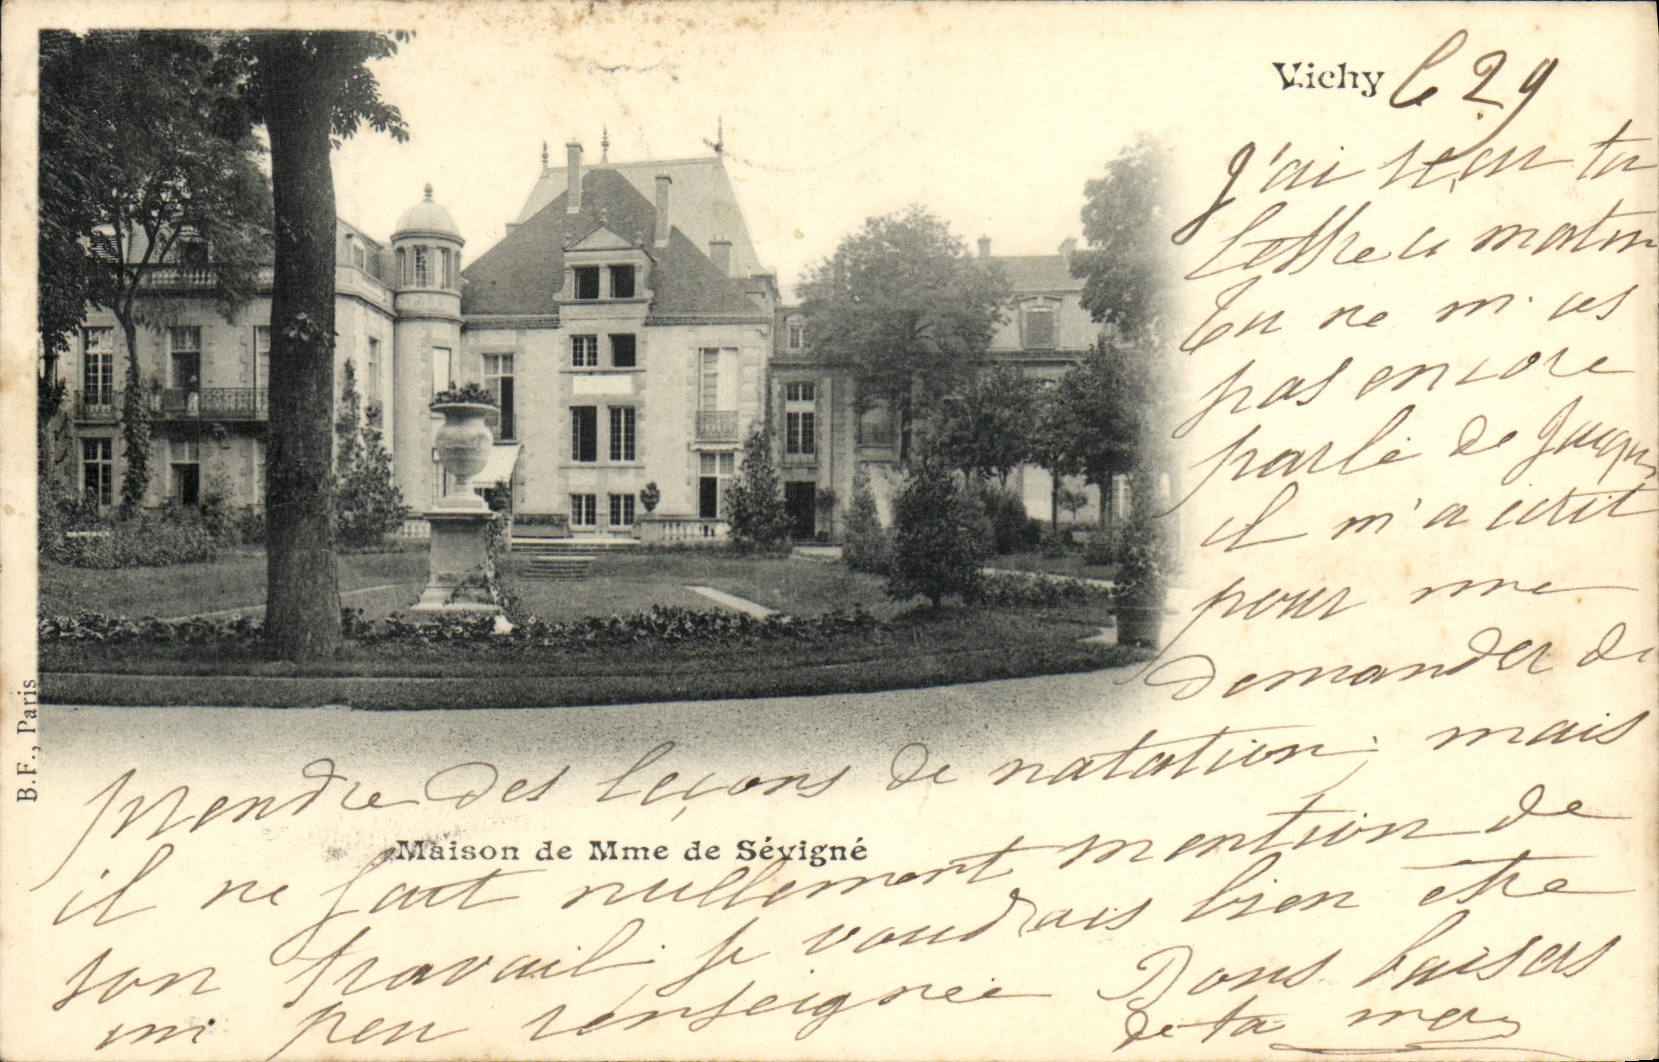 Vichy le 29
J'ai reçu ta
lettre ce matin
Tu ne m'as
pas encore
parlé de Jacques
il m'a écrit
pour me
demander de
prendre des leçons de natation, mais
il ne fait nullement mention de
son travail. je voudrais bien être
un peu renseignée Bons baisers
de ta mère
Maison de Mme de Sévigné
B.F., Paris